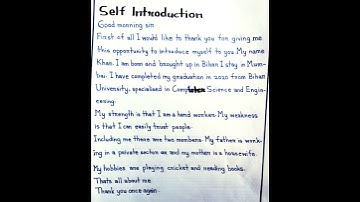 Self Introduction
Good morning sir
First of all I would like to thank you for giving me
this opportunity to introduce myself to you My name
Khan. I am born and brought up in Bihar I stay in Mum-
bai. I have completed my graduation in 2020 from Bihar
University, specialised in Computer Science and Engin-
eering.
My strength is that I am a hard worker. My weakness
is that I can easily trust people.
Including me there are two members. My father is work-
ing in a private sector as and my mother is a housewife.
My hobbies are playing cricket and reading books.
Thats all about me
Thank you once again.